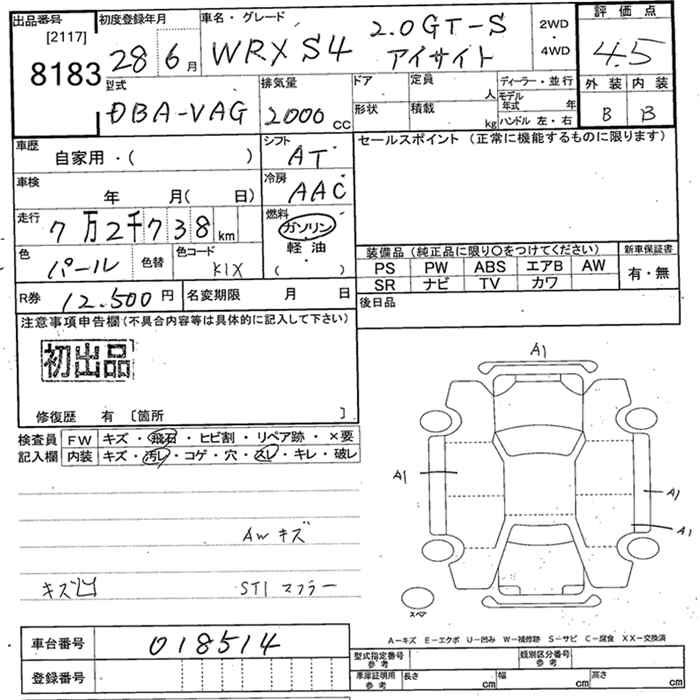 出品番号 [2117] 8183
初度登録年月 28 6月
車名・グレード WRX S4 2.0GT-S アイサイト
2WD・4WD
評価点 4.5
外装 B 内装 B
型式 DBA-VAG
排気量 2000 CC
ドア 形状
定員 人 積載 kg
ディーラー・並行
モデル年式 年
ハンドル 左・右
車歴 自家用・( )
シフト AT
セールスポイント (正常に機能するものに限ります)
車検 年 月( 日)
冷房 AAC
走行 7万2千738km
燃料 ガソリン 軽・油 ( )
色 パール 色替
色コード K1X
装備品(純正品に限り○をつけてください)
新車保証書 有・無
PS PW ABS エアB AW
SR ナビ TV カワ
R券 12.500円 名変期限 月 日
後日品
注意事項申告欄(不具合内容等は具体的に記入して下さい)
初出品
修復歴 有 [箇所 ]
検査員 FW キズ・飛石・ヒビ割・リペア跡・×要
記入欄 内装 キズ・汚レ・コゲ・穴・スレ・キレ・破レ
AWキズ
キズ凹 STIマフラー
A1
A1
A1
A1
スペア
A-キズ E-エクボ U-凹み W-補修跡 S-サビ C-腐食 XX-交換済
車台番号 018514
登録番号
型式指定番号 参考
類別区分番号 参考
車庫証明用 参考 長さ cm 幅 cm 高さ cm